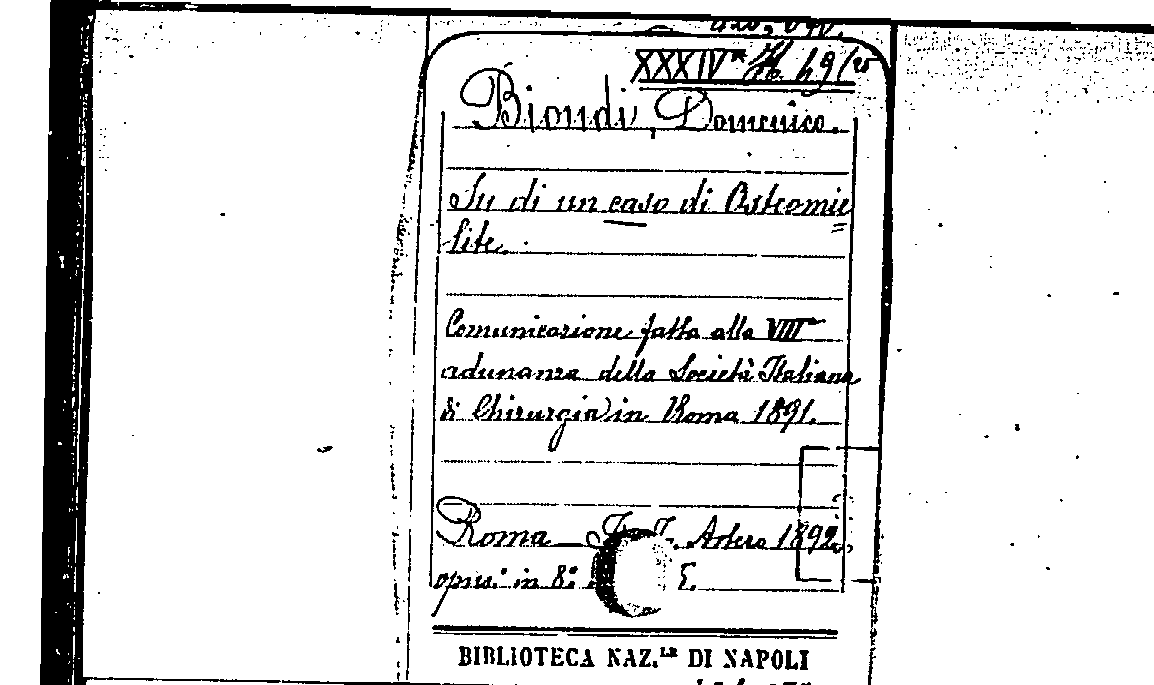 XXXIV
Biondi, Domenico.
Su di un caso di Osteomie
lite.
Comunicazione fatta alla VIII
adunanza della Società Italiana
di Chirurgia in Roma 1891.
Roma Artero 1892.
opus.° in 8.°
BIBLIOTECA NAZ.LE DI NAPOLI